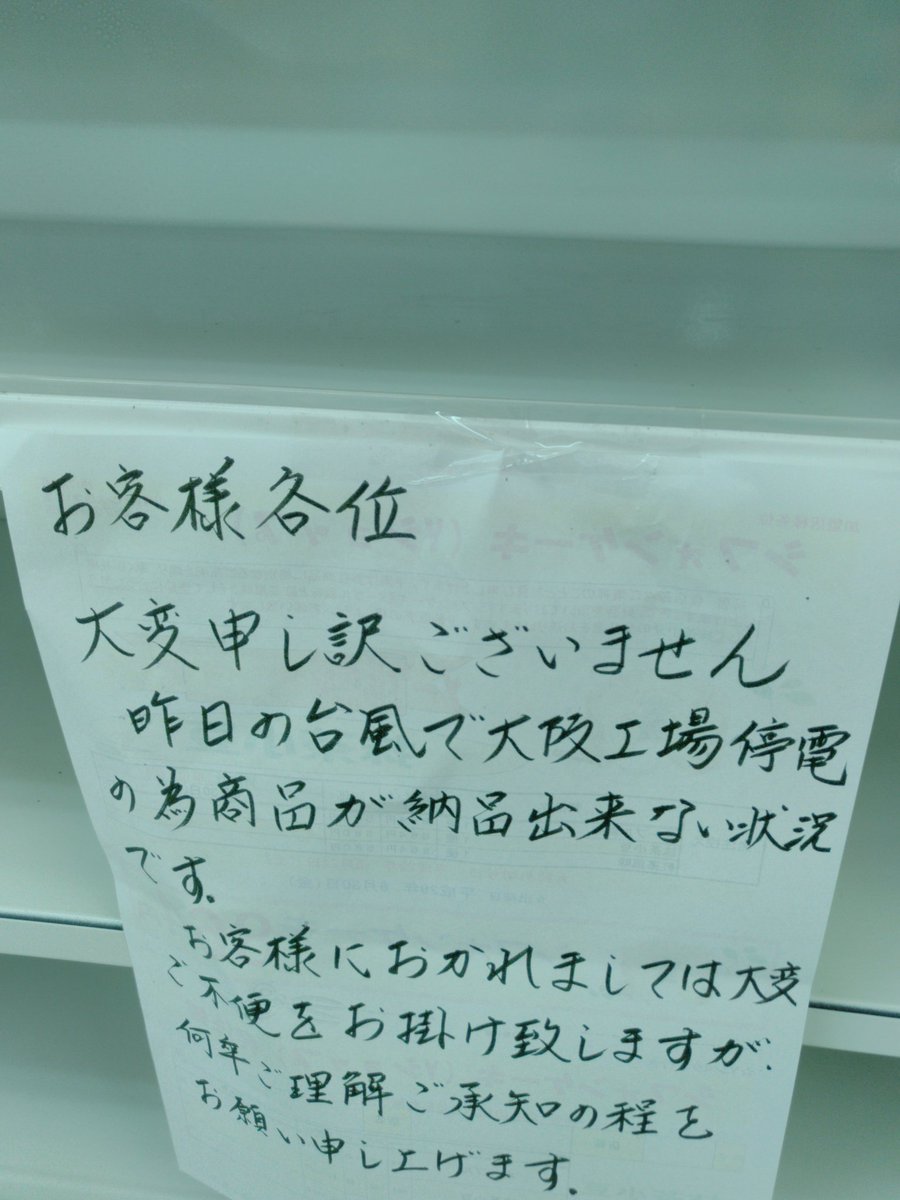 お客様各位
大変申し訳ございません
昨日の台風で大阪工場停電
の為商品が納品出来ない状況
です.
お客様におかれましては大変
ご不便をお掛け致しますが.
何卒ご理解ご承知の程を
お願い申し上げます.